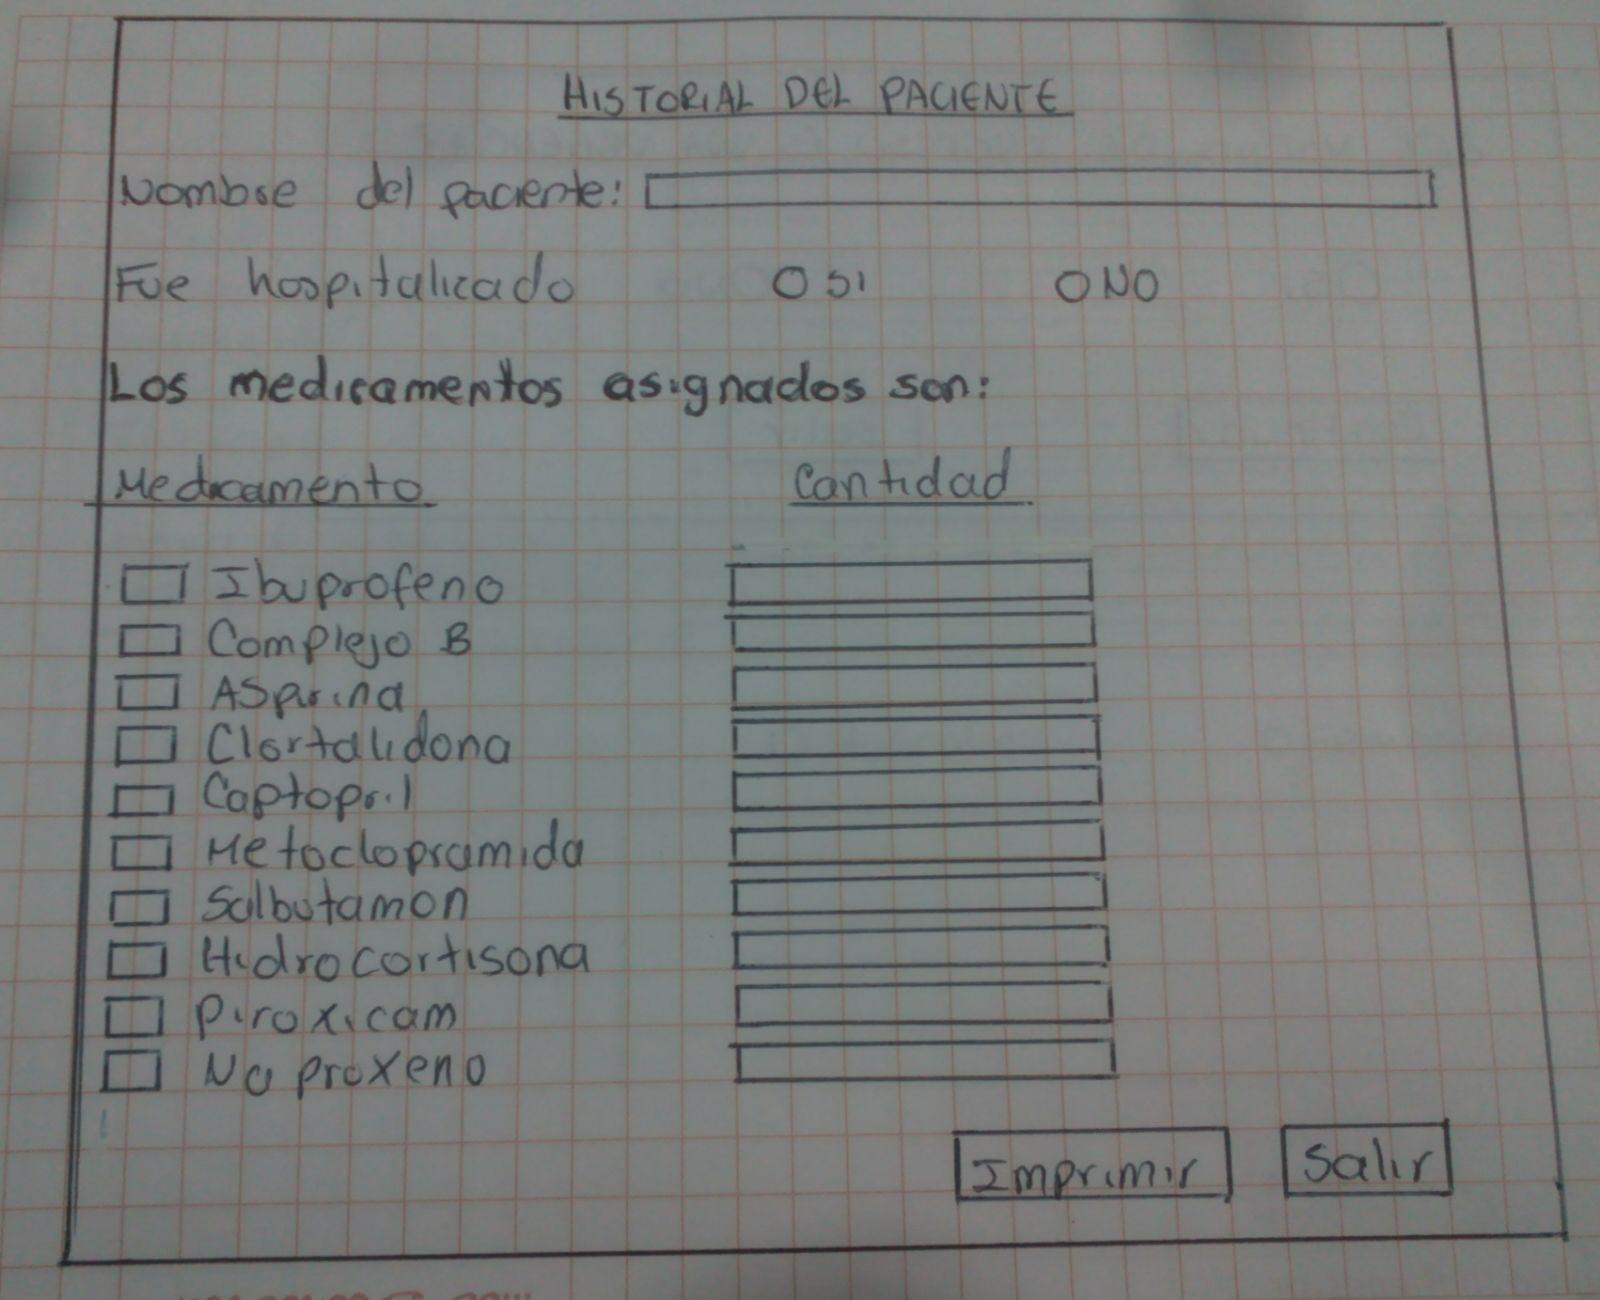 HISTORIAL DEL PACIENTE
Nombre del paciente:
Fue hospitalicado SI NO
Los medicamentos asignados son:
Medicamento Cantidad
Ibuprofeno
Complejo B
Aspirina
Clortalidona
Captopril
Metoclopramida
Salbutamon
Hidrocortisona
Piroxicam
Naproxeno
Imprimir Salir